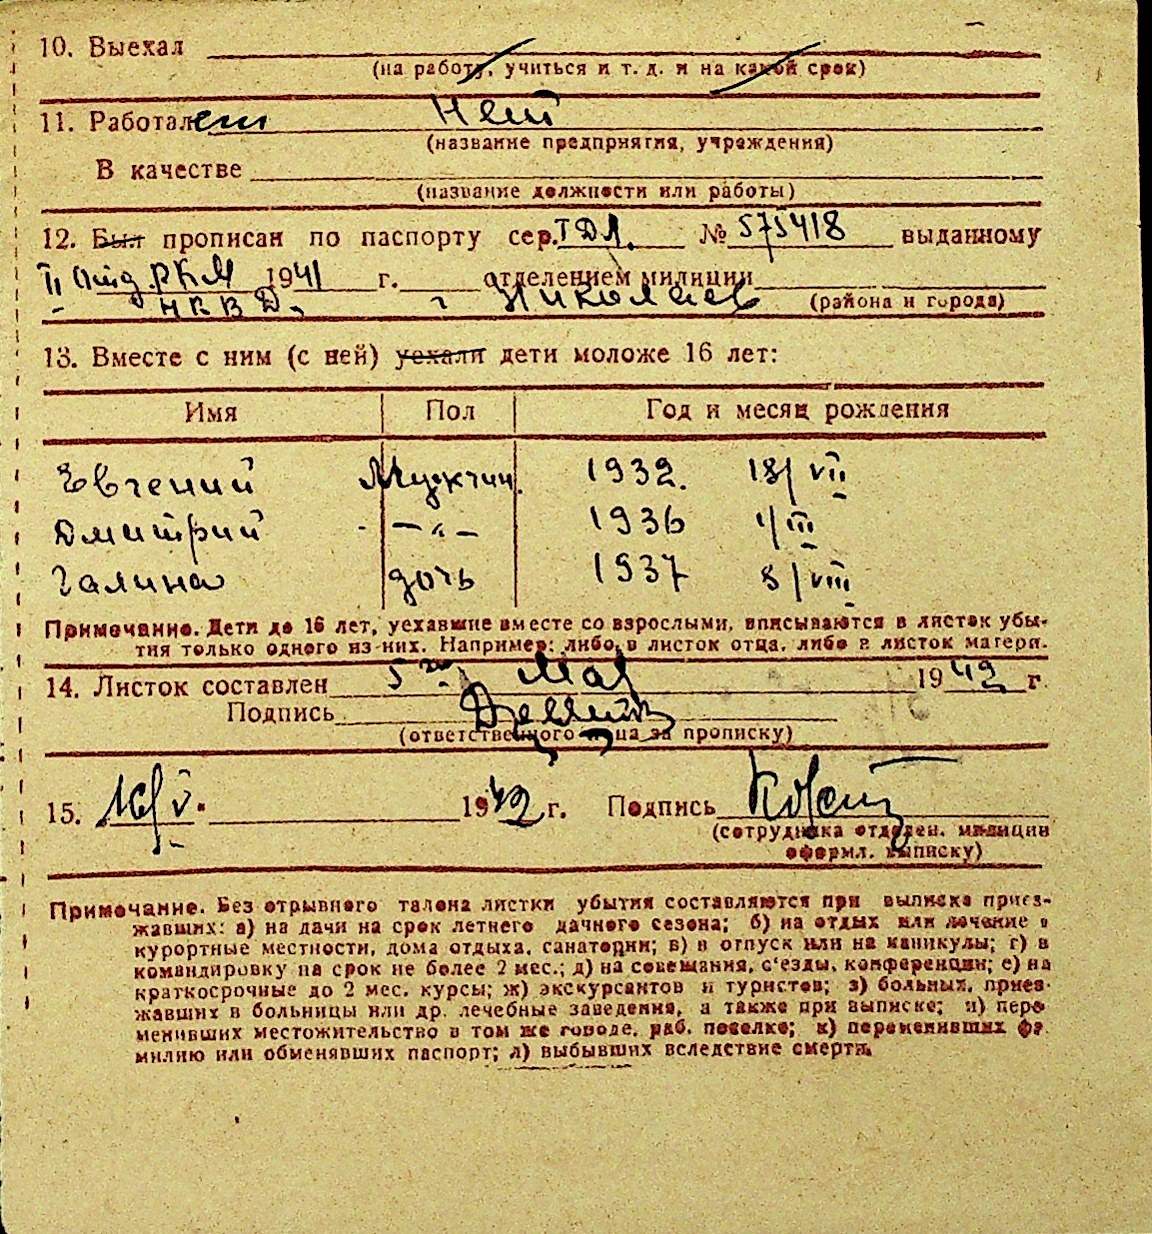 10. Выехал
(на работу, учиться и т. д. и на какой срок)
11. Работает Нет
(название предприятия, учреждения)
В качестве
(название должности или работы)
12. Был прописан по паспорту сер. ТДЛ. № 575418 выданному
II Отд. РКМ 1941 г. отделением милиции
НКВД. г Николаев (района и города)
13. Вместе с ним (с ней) уехали дети моложе 16 лет:
Имя Пол Год и месяц рождения
Евгений Мужчин. 1932. 18/VII
Дмитрий -"- 1936 1/III
Галина дочь 1937 8/VIII
Примечание. Дети до 16 лет, уехавшие вместе со взрослыми, вписываются в листок убы-
тия только одного из них. Например: либо в листок отца, либо в листок матери.
14. Листок составлен 5 го Мая 1942 г.
Подпись
(ответственного лица за прописку)
15. 16/V. 1942 г. Подпись
(сотрудника отделен. милиции
оформл. выписку)
Примечание. Без отрывного талона листки убытия составляются при выписке приез-
жавших: а) на дачи на срок летнего дачного сезона; б) на отдых или лечение в
курортные местности, дома отдыха, санатории; в) в отпуск или на каникулы; г) в
командировку на срок не более 2 мес.; д) на совещания, с'езды, конференции; е) на
краткосрочные до 2 мес. курсы; ж) экскурсантов и туристов; з) больных, приез-
жавших в больницы или др. лечебные заведения, а также при выписке; и) пере
менивших местожительство в том же городе, раб. поселке; к) переменивших фа.
милию или обменявших паспорт; л) выбывших вследствие смерти.